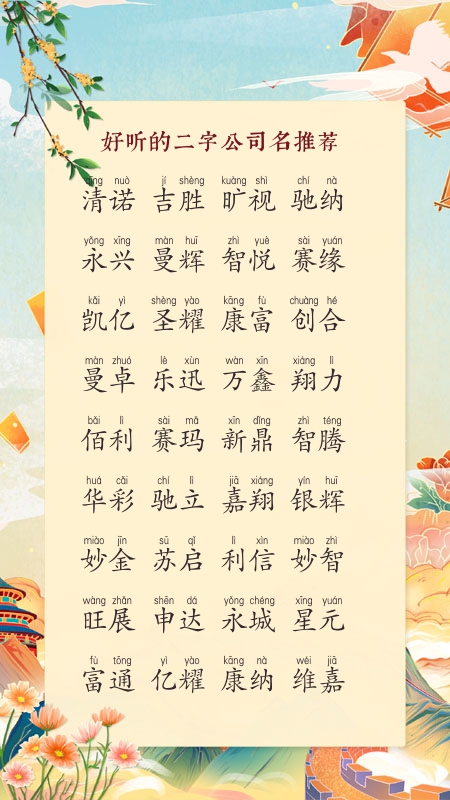 好听的二字公司名推荐
qīng nuò jí shèng kuàng shì chí nà
清诺 吉胜 旷视 驰纳
yǒng xīng màn huī zhì yuè sài yuán
永兴 曼辉 智悦 赛缘
kǎi yì shèng yào kāng fù chuàng hé
凯亿 圣耀 康富 创合
màn zhuó lè xùn wàn xīn xiáng lì
曼卓 乐迅 万鑫 翔力
bǎi lì sài mǎ xīn dǐng zhì téng
佰利 赛玛 新鼎 智腾
huá cǎi chí lì jiā xiáng yín huī
华彩 驰立 嘉翔 银辉
miào jīn sū qǐ lì xìn miào zhì
妙金 苏启 利信 妙智
wàng zhǎn shēn dá yǒng chéng xīng yuán
旺展 申达 永城 星元
fù tōng yì yào kāng nà wéi jiā
富通 亿耀 康纳 维嘉